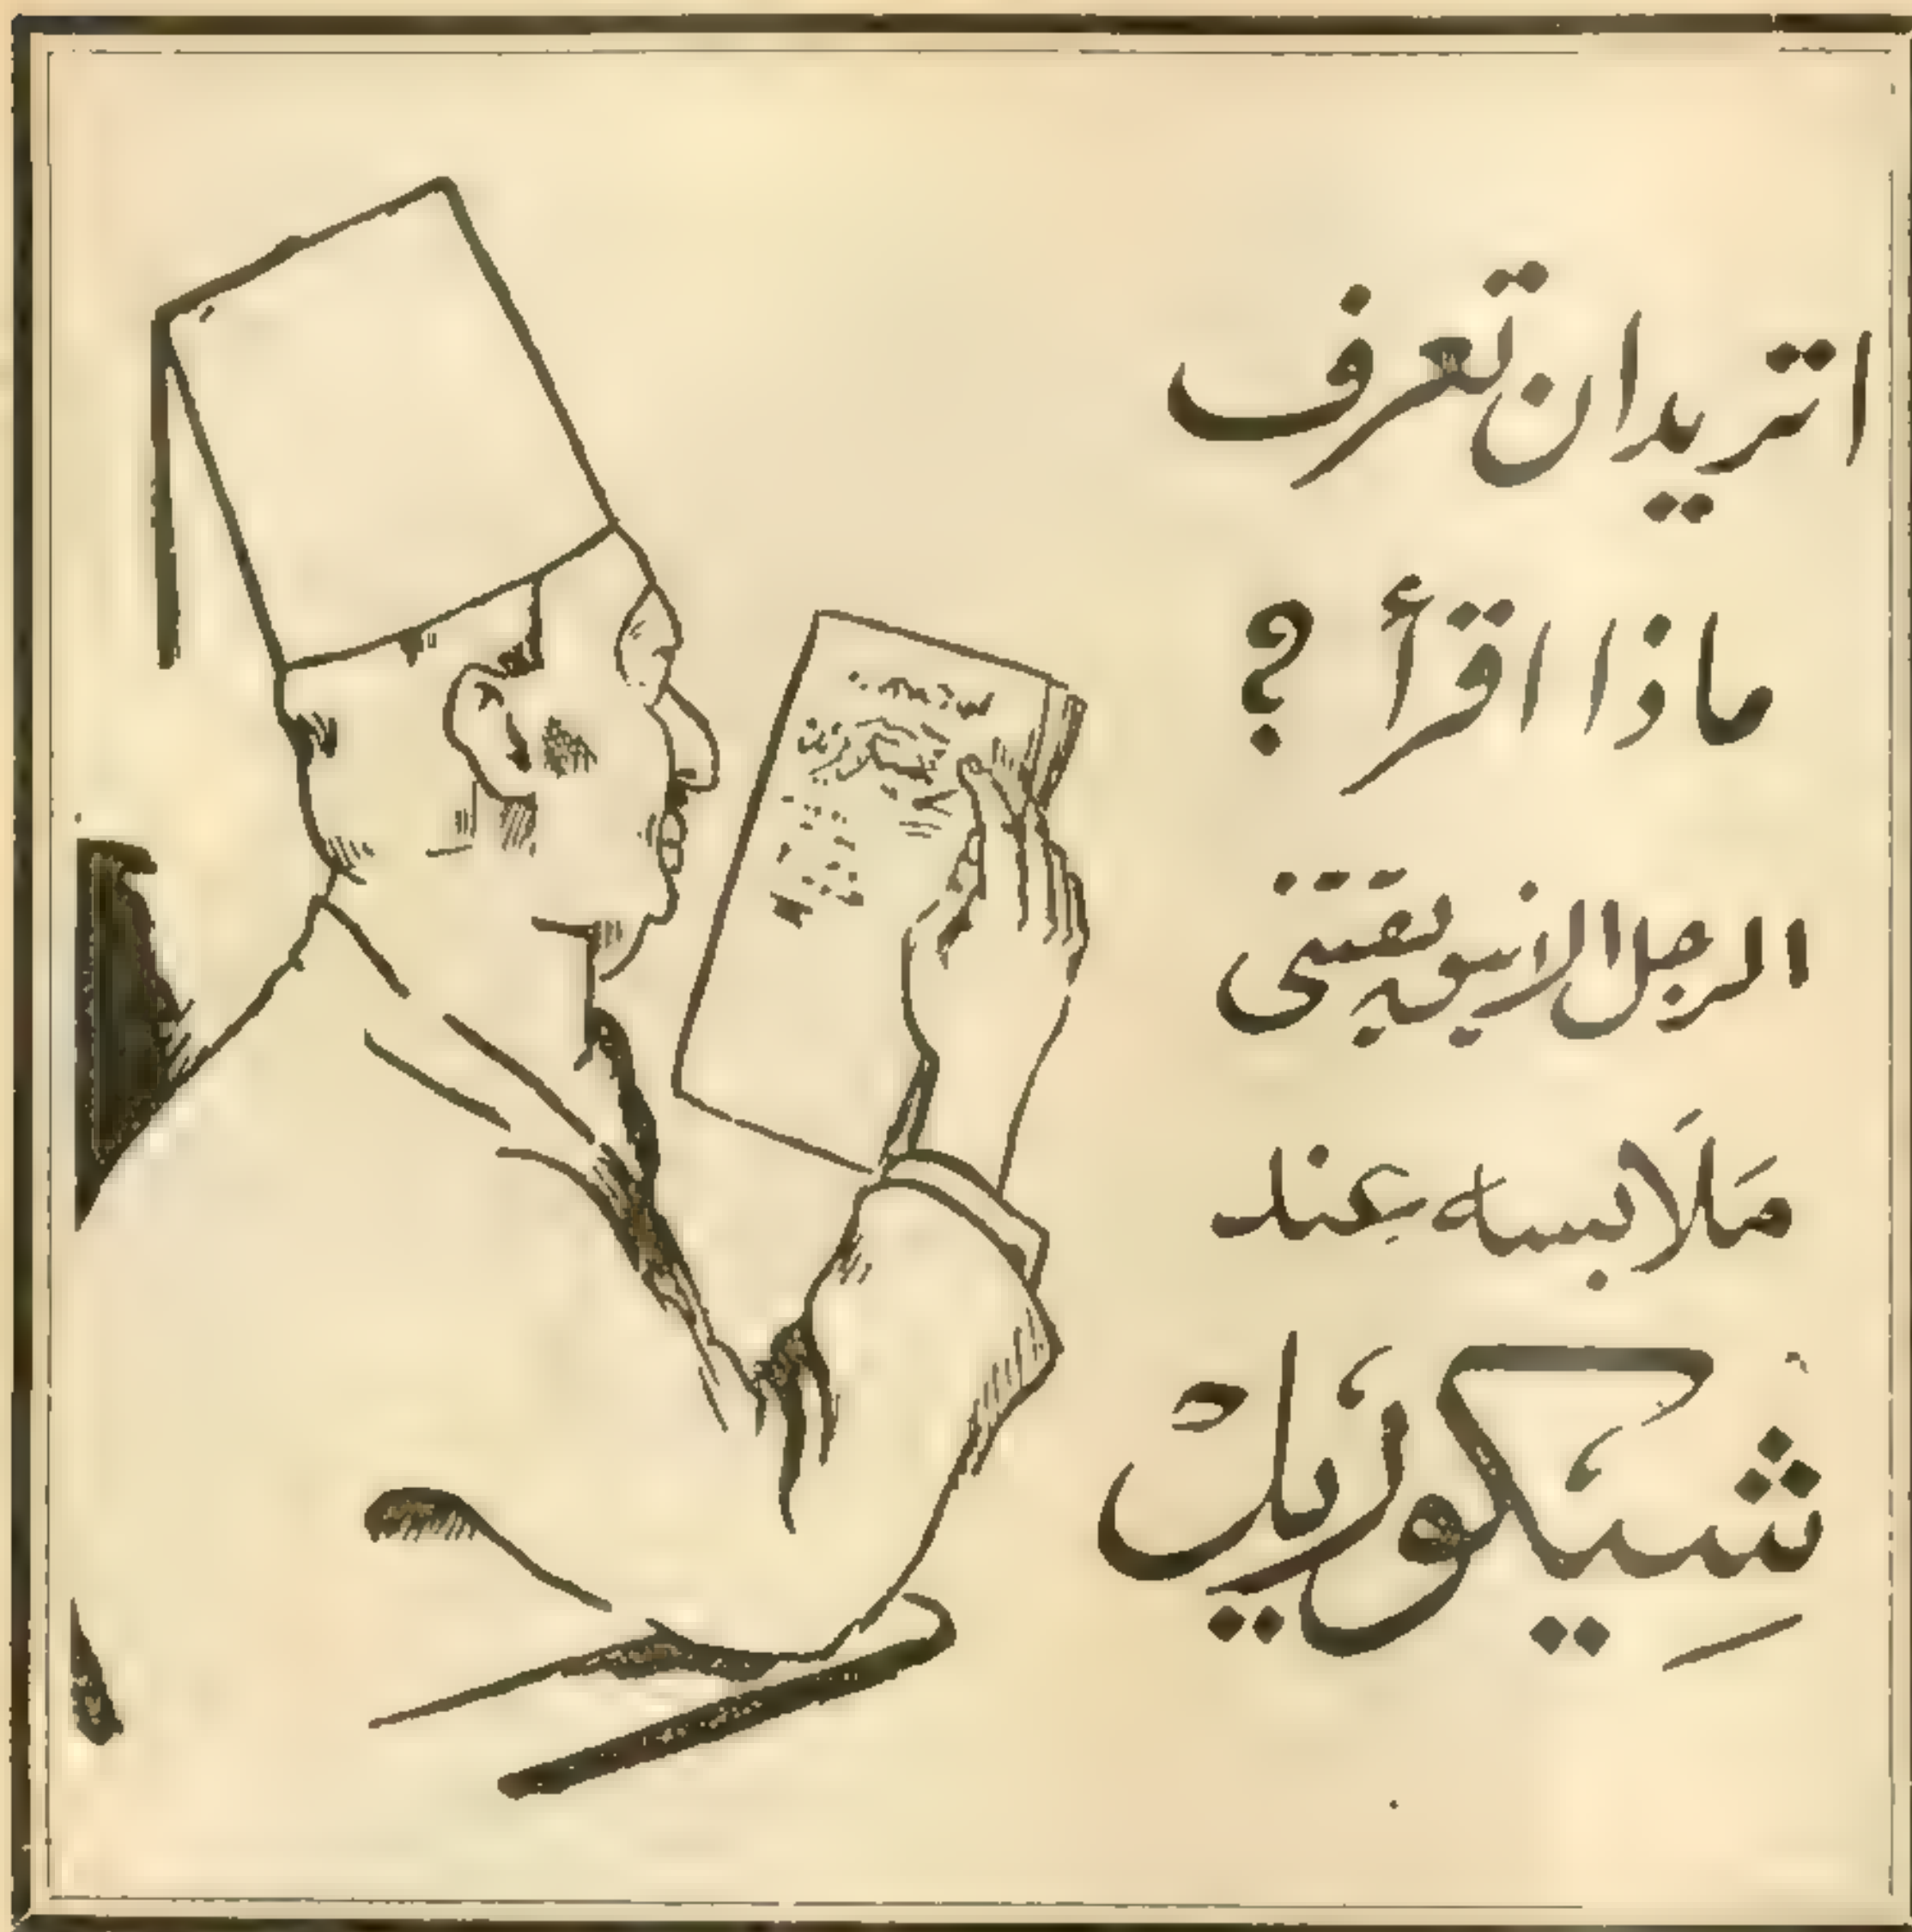 اتريد ان تعرف
ماذا اقرأ ؟
الرجل الانيق يقتنى
مَلَابسه عند
شِيكوريل